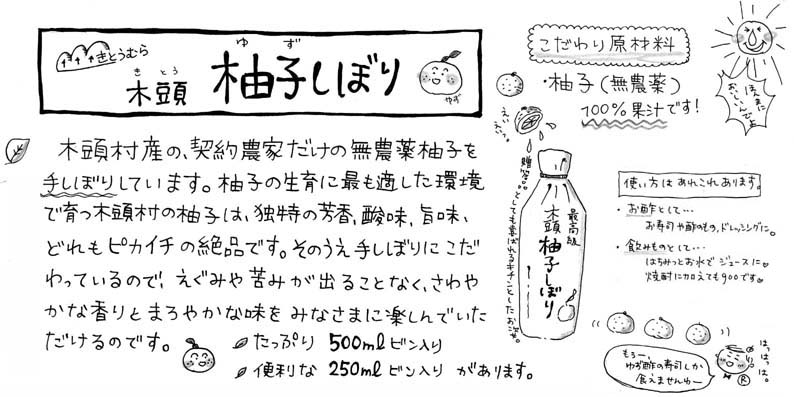 きとうむら
きとう
木頭
ゆず
柚子しぼり
ゆず
木頭村産の、契約農家だけの無農薬柚子を
手しぼりしています。柚子の生育に最も適した環境
で育つ木頭村の柚子は、独特の芳香、酸味、旨味、
どれもピカイチの絶品です。そのうえ手しぼりにこだ
わっているので、えぐみや苦みが出ることなく、さわや
かな香りとまろやかな味をみなさまに楽しんでいた
だけるのです。
たっぷり 500mlビン入り
便利な 250mlビン入り があります。
こだわり原材料
・柚子(無農薬)
100%果汁です!
ほんまに
おいしいんでよ
贈答に
とっても喜ばれるキチンとしたお姿。
最高級
木頭柚子しぼり
使い方はあれこれあります。
・お酢として…
お寿司や酢のもの、ドレッシングに。
・飲みものとして…
はちみつとお水でジュースに
焼酎に加えても900です
もろー、
ゆず酢の寿司しか
食えませんわー
はっはっは。